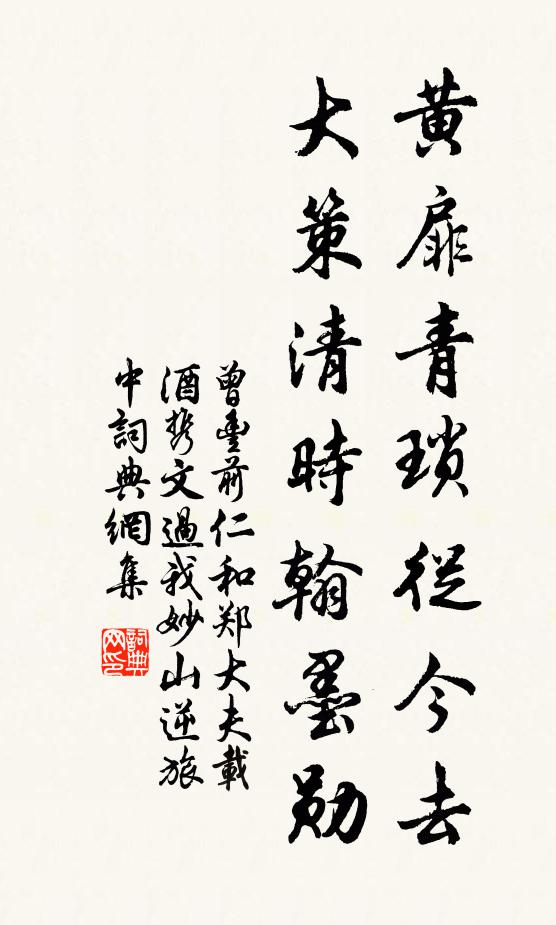 黄扉青瑣從今去
大策清時翰墨勋
曾豊前仁和郑大夫載
酒携文過我妙山逆旅
中詞典網集
詞典网印